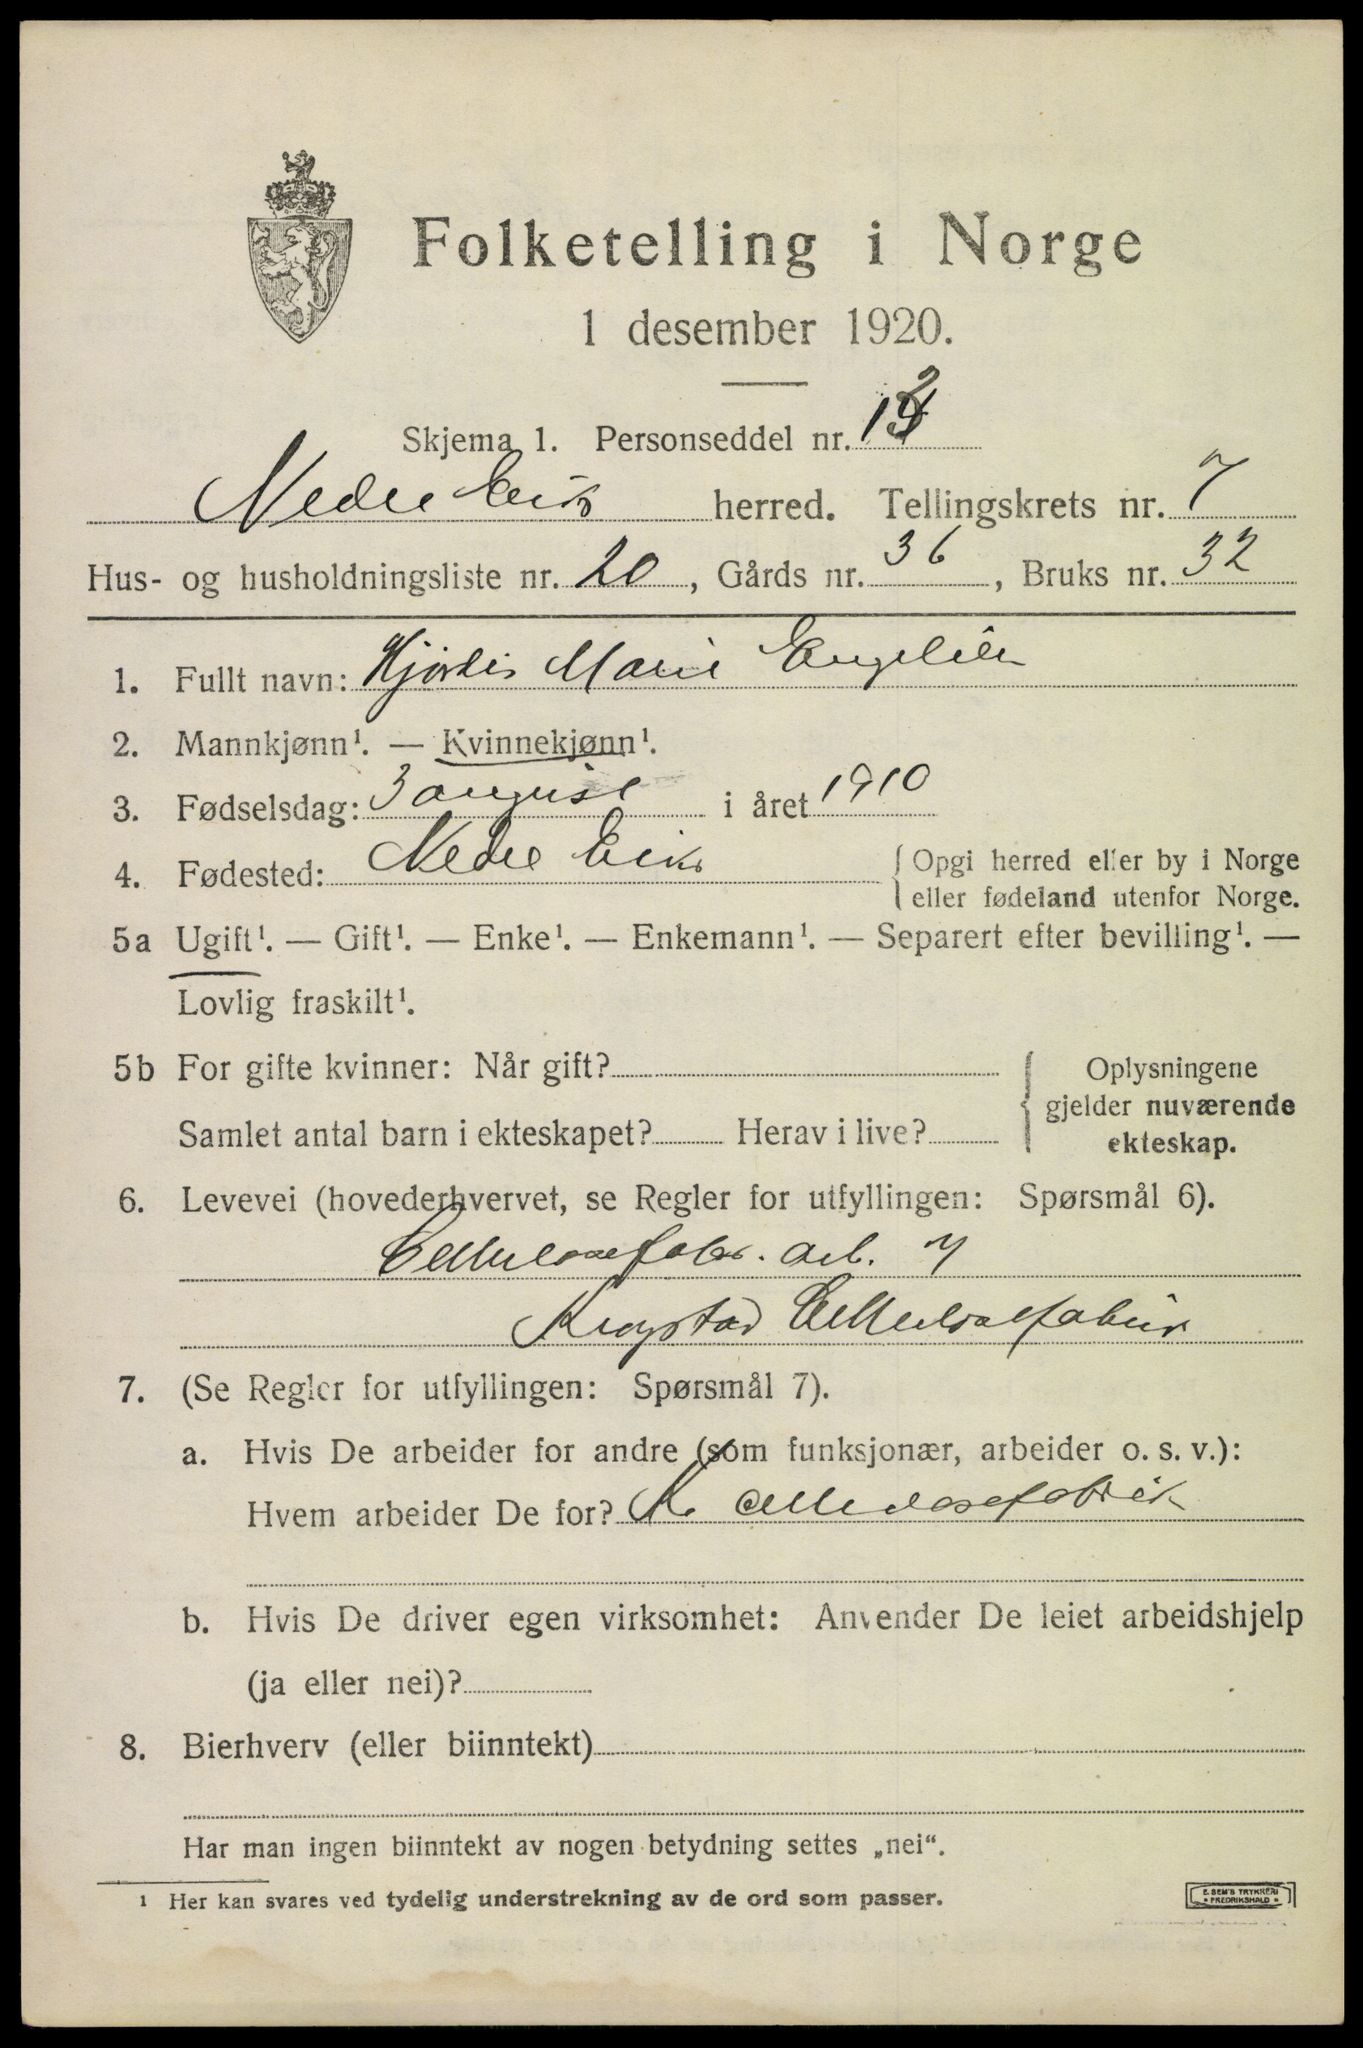 Folketelling i Norge
1 desember 1920.
Skjema 1. Personseddel nr. 12
Nedre Eiker herred. Tellingskrets nr. 7
Hus- og husholdningsliste nr. 20, Gårds nr. 36, Bruks nr. 32
1. Fullt navn: Hjørdis Marie Engelien
2. Mannkjønn¹. — Kvinnekjønn¹.
3. Fødselsdag: 3 august i året 1910
4. Fødested: Nedre Eiker { Opgi herred eller by i Norge
eller fødeland utenfor Norge.
5a Ugift¹. — Gift¹. — Enke¹. — Enkemann¹. — Separert efter bevilling¹. —
Lovlig fraskilt¹.
5b For gifte kvinner: Når gift? { Oplysningene
gjelder nuværende
ekteskap.
Samlet antal barn i ekteskapet? Herav i live?
6. Levevei (hovederhvervet, se Regler for utfyllingen: Spørsmål 6).
Cellulosefabr. arb.
Krogstad Cellulosefabrik
7. (Se Regler for utfyllingen: Spørsmål 7).
a. Hvis De arbeider for andre (som funksjonær, arbeider o. s. v.):
Hvem arbeider De for? K. Cellulosefabrik
b. Hvis De driver egen virksomhet: Anvender De leiet arbeidshjelp
(ja eller nei)?
8. Bierhverv (eller biinntekt)
Har man ingen biinntekt av nogen betydning settes „nei“.
¹ Her kan svares ved tydelig understrekning av de ord som passer.
E. SEM'S TRYKKERI
FREDRIKSHALD